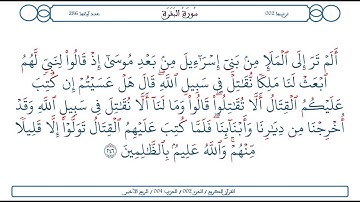 ترتيبها 002
سُورَةُ البَقَرَةِ
عدد آياتها 286
أَلَمْ تَرَ إِلَى ٱلْمَلَإِ مِنۢ بَنِىٓ إِسْرَٰٓءِيلَ مِنۢ بَعْدِ مُوسَىٰٓ إِذْ قَالُوا۟ لِنَبِىٍّ لَّهُمُ
ٱبْعَثْ لَنَا مَلِكًا نُّقَٰتِلْ فِى سَبِيلِ ٱللَّهِ ۖ قَالَ هَلْ عَسَيْتُمْ إِن كُتِبَ
عَلَيْكُمُ ٱلْقِتَالُ أَلَّا تُقَٰتِلُوا۟ ۖ قَالُوا۟ وَمَا لَنَآ أَلَّا نُقَٰتِلَ فِى سَبِيلِ ٱللَّهِ وَقَدْ
أُخْرِجْنَا مِن دِيَٰرِنَا وَأَبْنَآئِنَا ۖ فَلَمَّا كُتِبَ عَلَيْهِمُ ٱلْقِتَالُ تَوَلَّوْا۟ إِلَّا قَلِيلًا
مِّنْهُمْ ۗ وَٱللَّهُ عَلِيمٌۢ بِٱلظَّٰلِمِينَ ﴿٢٤٦﴾
القرآن الكريم / الجزء 002 / الحزب 004 / الربع الخامس